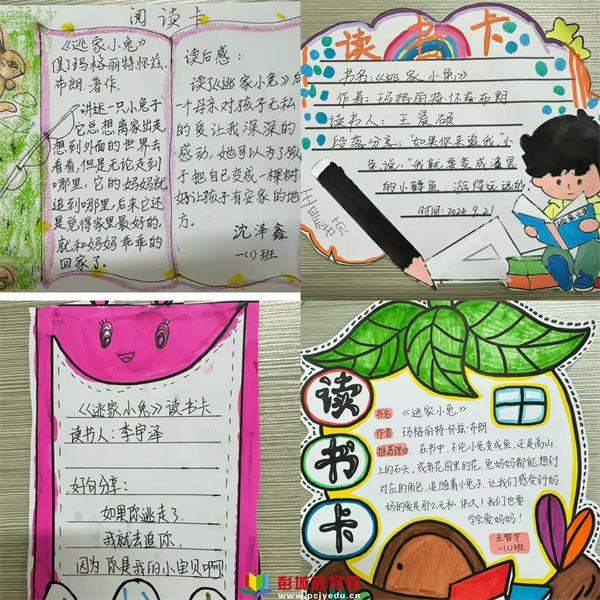 阅读卡
《逃家小兔》
(美)玛格丽特·怀兹·
布朗.著作.
讲述一只小兔子
它总想离家出走,
想到外面的世界去
看看,但是无论走到
哪里,它的妈妈就
追到哪里,后来它还
是觉得家里最好的,
就和妈妈乖乖的
回家了。
读后感:
读了《逃家小兔》后
一个母亲对孩子无私
的爱让我深深的
感动,她可以为了孩
子把自己变成一棵树
好让孩子有安家的地
方。
沈泽鑫
一(1)班
读书卡
书名:《逃家小兔》
作者:玛格丽特·怀兹·布朗
读书人:王昊硕
段落分享:“如果你来追我”小
兔说,“我就要变成溪里
的小鳟鱼,游得远远的。
时间:2024.9.21
《逃家小兔》读书卡
读书人:李宇泽
好句分享:
如果你逃走了.
我就去追你,
因为你是我的小宝贝啊!
读书卡
书名 《逃家小兔》
作者 玛格丽特·怀兹·布朗
推荐理由: 在书中,不论小兔变成鱼,还是高山
上的石头,或者花园里的花,兔妈妈都能想到
对应的角色,追随着小兔子.让我们感受到妈
妈的爱是那么无私.伟大!我们也要
学会爱妈妈!
一(1)班
彭城教育网
www.pcjyedu.cn